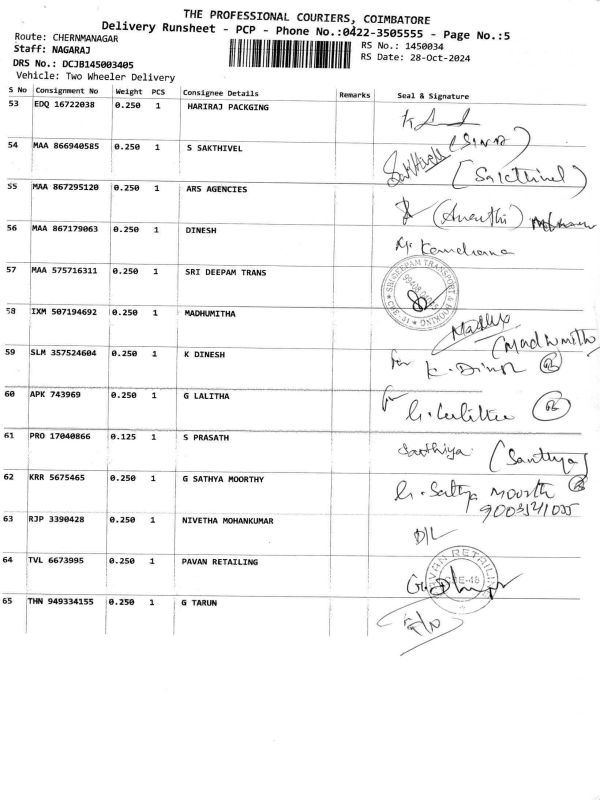 THE PROFESSIONAL COURIERS, COIMBATORE
Delivery Runsheet - PCP - Phone No.:0422-3505555 - Page No.:5
Route: CHERNMANAGAR
RS No.: 1450034
Staff: NAGARAJ
RS Date: 28-Oct-2024
DRS No.: DCJB145003405
Vehicle: Two Wheeler Delivery
S No Consignment No Weight PCS Consignee Details Remarks Seal & Signature
53 EDQ 16722038 0.250 1 HARIRAJ PACKGING
54 MAA 866940585 0.250 1 S SAKTHIVEL Sakthivel
55 MAA 867295120 0.250 1 ARS AGENCIES (Ananthi)
56 MAA 867179063 0.250 1 DINESH
57 MAA 575716311 0.250 1 SRI DEEPAM TRANS SRI DEEPAM TRANSPORT & BOOKING
58 IXM 507194692 0.250 1 MADHUMITHA (Madhumitha
59 SLM 357524604 0.250 1 K DINESH for K. Dinesh
60 APK 743969 0.250 1 G LALITHA for G. Lalitha
61 PRO 17040866 0.125 1 S PRASATH Santhiya (Santhya)
62 KRR 5675465 0.250 1 G SATHYA MOORTHY G. Sathya Moorth
63 RJP 3390428 0.250 1 NIVETHA MOHANKUMAR D/L
64 TVL 6673995 0.250 1 PAVAN RETAILING PAVAN RETAILING
65 THN 949334155 0.250 1 G TARUN